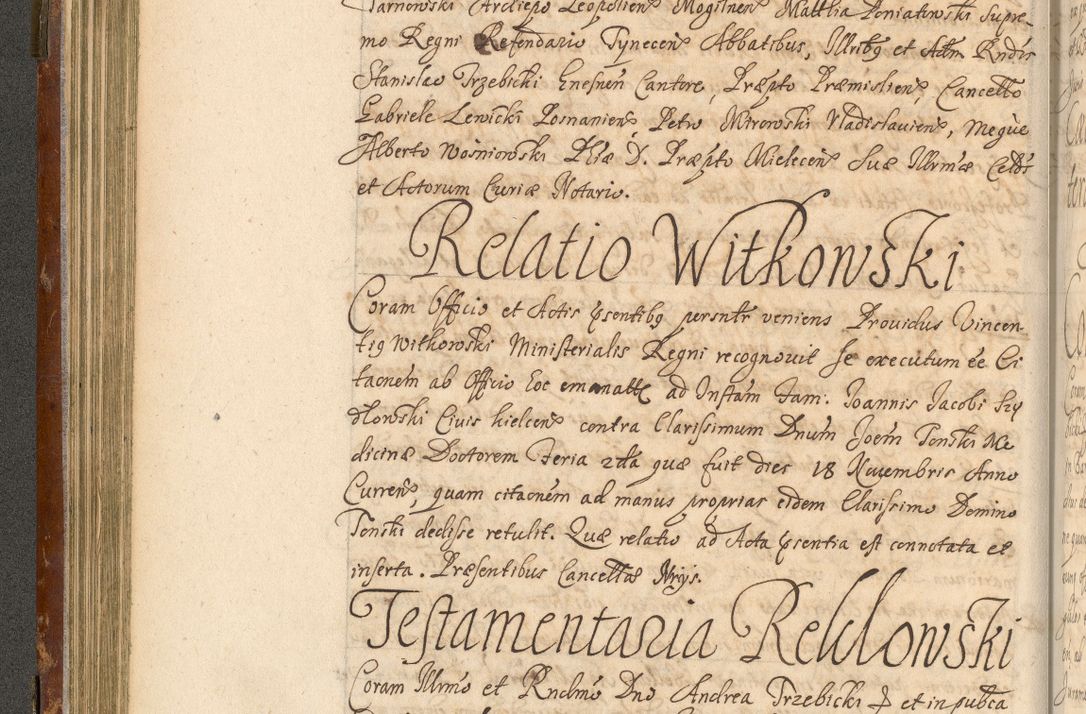 Tarnowski Archiepo Leopolien̄ Mogilnen̄ Matthia Poniatowski Supre-
mo Regni Refendario Tynecen̄ Abbatibus, Illribꝯ et Adm Rndis
Stanislao Trzebicki Gnesnen̄ Cantore, Præpto Præmislien̄, Cancello
Gabriele Lewicki Posnanien̄ Petro Mirowski Vladislavien̄, Meque
Alberto Wosniowski Præpto Mielecen̄ Suæ Illrmæ Celdis
et Actorum Curiæ Notario.
Relatio Witkowski
Coram Officio et Actis pse̅ntibꝯ persntr veniens Providus Vincen-
tiꝯ Witkowski Ministerialis Regni recognovit se executum eē Ci
tao̅nem ab Officio hoc emanatt ad Instām Fam. Joannis Jacobi Szy
dlowski Civis kielcen̄ contra Clarissimum Dnūm Joēm Tonski Me
dicinæ Doctorem Feria 2da quæ fuit dies 18 Novembris Anno
Curren̄, quam citao̅nem ad manus proprias eidem Clarissimo Domino
Tonski dedisse retulit. Quæ relatio ad Acta pse̅ntia est connotata et
inserta. Præsentibus Cancellæ Nrijs.
Testamentaria Reklowski
Coram Illrmo et Rndmo Dno Andrea Trzebicki et in pubca